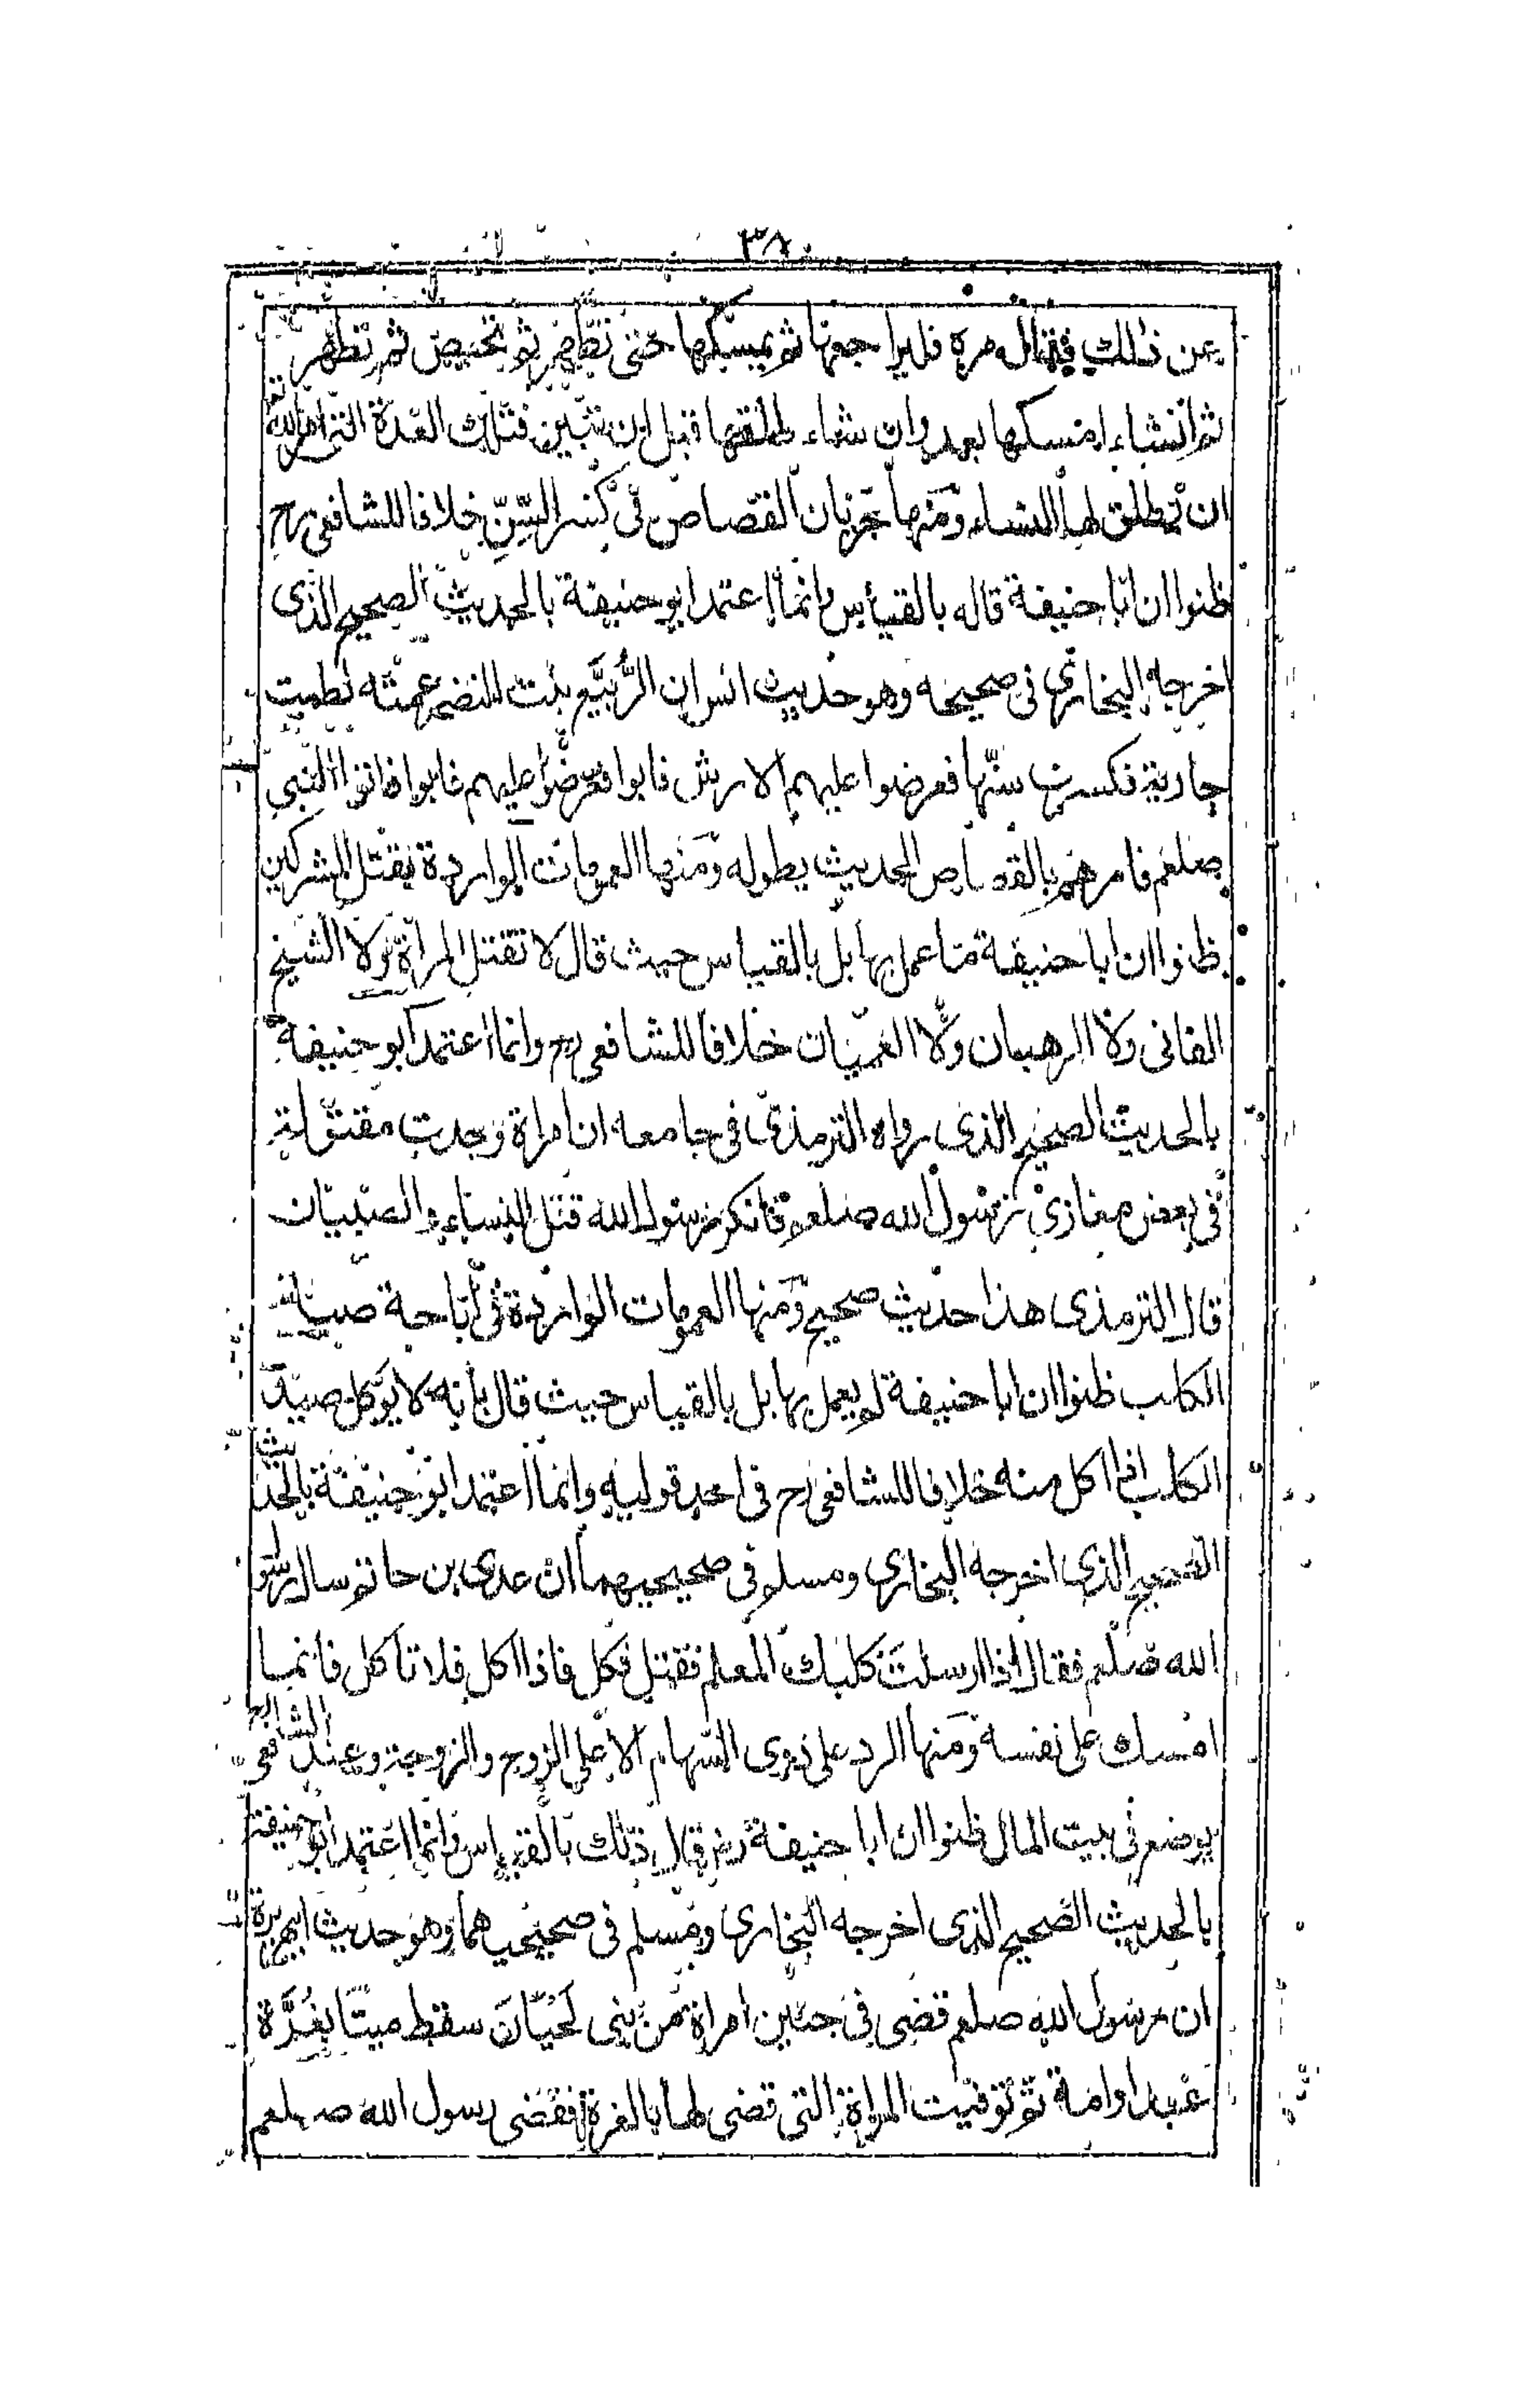 ٣٨
عن ذلك فقال مره فليراجعها ثم يمسكها حتى تطهر ثم تحيض ثم تطهر
ثم انشاء امسكها بعد وان شاء طلقها قبل ان فتلك العدة التى امر الله تعا
ان تطلق لها النساء ومنها جريان القصاص فى كسر السن خلافا للشافعى رح
ظنوا ان ابا حنيفة قاله بالقياس وانما اعتمد ابو حنيفة بالحديث الصحيح الذى
اخرجه البخارى فى صحيحه وهو حديث انس ان الرُّبَيَّع بنت النضر عمته لطمت
جارية فكسرت سنّها فعرضوا عليهم الارش فابوا فعرضوا عليهم فابوا فاتوا النبي
صلعم فامرهم بالقصاص الحديث بطوله ومنها العمومات الواردة بقتل المشركين
ظنوا ان ابا حنيفة ما عمل بها بل بالقياس حيث قال لا تقتل المراة ولا الشيخ
الفانى ولا الرهبان ولا العميان خلافا للشافعى رح وانما اعتمد ابو حنيفة
بالحديث الصحيح الذى رواه الترمذى فى جامعه ان امراة وجدت مقتولة
فى بعض مغازى رسول الله صلعم فانكر رسول الله قتل النساء والصبيان
قال الترمذى هذا حديث صحيح ومنها العمومات الواردة فى اباحة صيد
الكلب ظنوا ان ابا حنيفة لم يعمل بها بل بالقياس حيث قال بانه لا يوكل صيد
الكلب اذا اكل منه خلافا للشافعى رح فى احد قوليه وانما اعتمد ابو حنيفة بالحديث
الصحيح الذى اخرجه البخارى ومسلم فى صحيحيهما ان عدى بن حاتم سال رسول
الله صلعم فقال اذا ارسلت كلبك المعلم فقتل فكل فاذا اكل فلا تاكل فانما
امسك على نفسه ومنها الرد على ذوى السهام الا على الزوج والزوجة وعند الشافعى رح
يوضع فى بيت المال ظنوا ان ابا حنيفة رض قال ذلك بالقياس وانما اعتمد ابو حنيفة
بالحديث الصحيح الذى اخرجه البخارى ومسلم فى صحيحيهما وهو حديث ابيهريرة
ان رسول الله صلعم قضى فى جنين امراة من بنى لَحْيَان سقط ميتا بغُرَّة
عبد او امة ثم توفيت المراة التى قضى لها بالغرة فقضى رسول الله صلعم